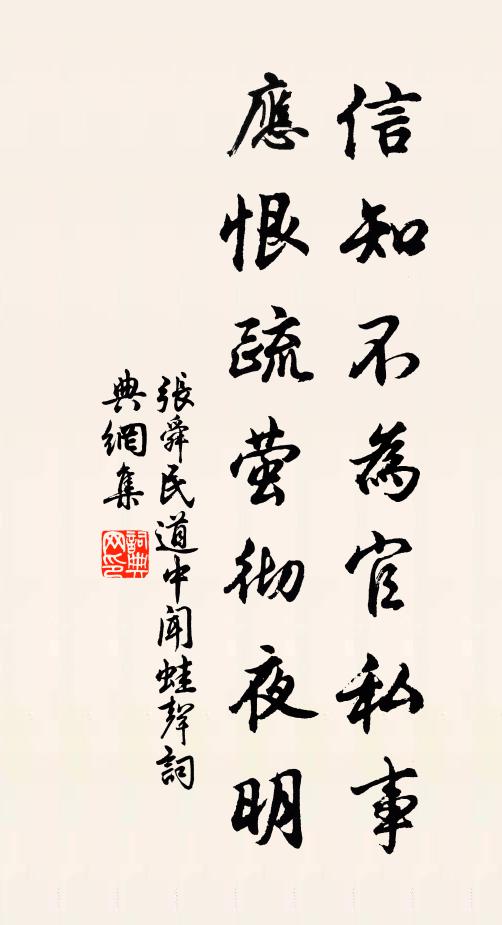 信知不為官私事
應恨疏螢徹夜明
張舜民道中聞蛙聲詞
典網集
詞典網印